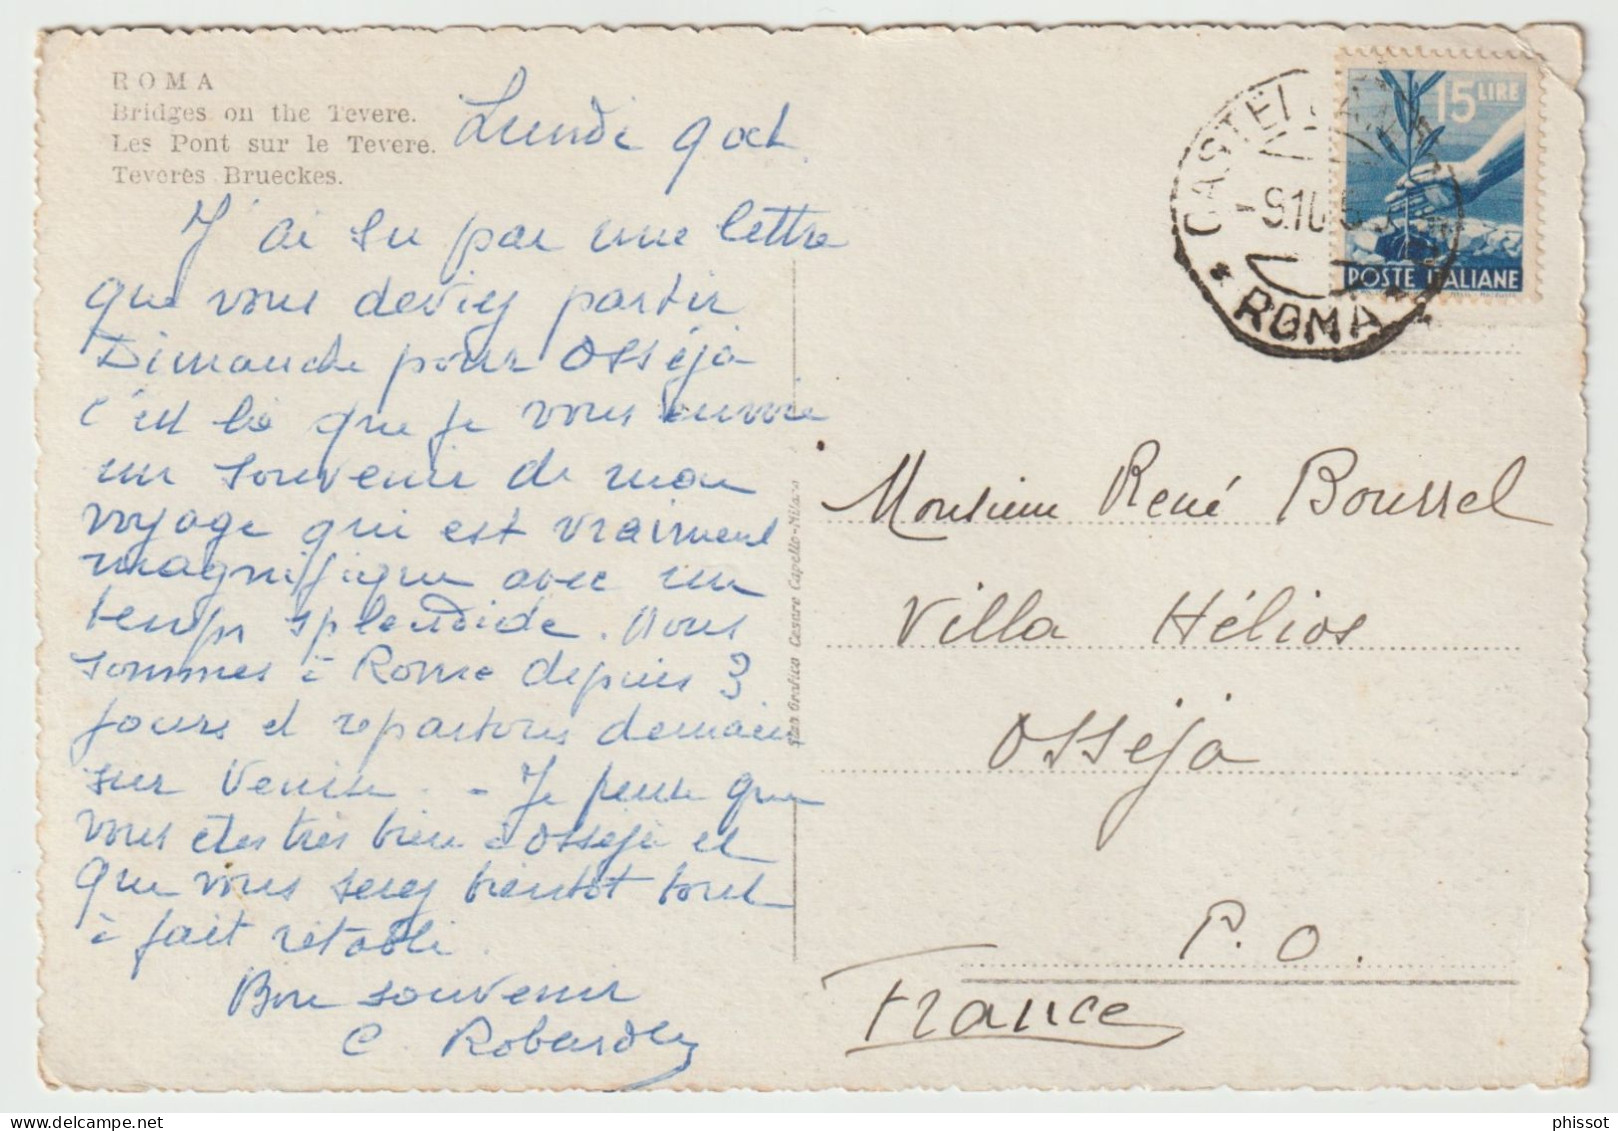 ROMA
Bridges on the Tevere.
Les Pont sur le Tevere.
Teveres Brueckes.
Lundi 9 oct.
J'ai su par une lettre
que vous deviez partir
Dimanche pour Osséja
c'est là que je vous envoie
un souvenir de mon
voyage qui est vraiment
magnifique avec un
temps splendide. Nous
sommes à Rome depuis 3
jours et repartons demain
sur Venise. - Je pense que
vous êtes très bien à Osséja et
que vous serez bientôt tout
à fait rétabli.
Bon souvenir
C.
Grafica Cesare Capello-Milano
15 LIRE
POSTE ITALIANE
ROMA
Monsieur René Boussel
Villa Hélios
Osséja
P.O.
France
phissot